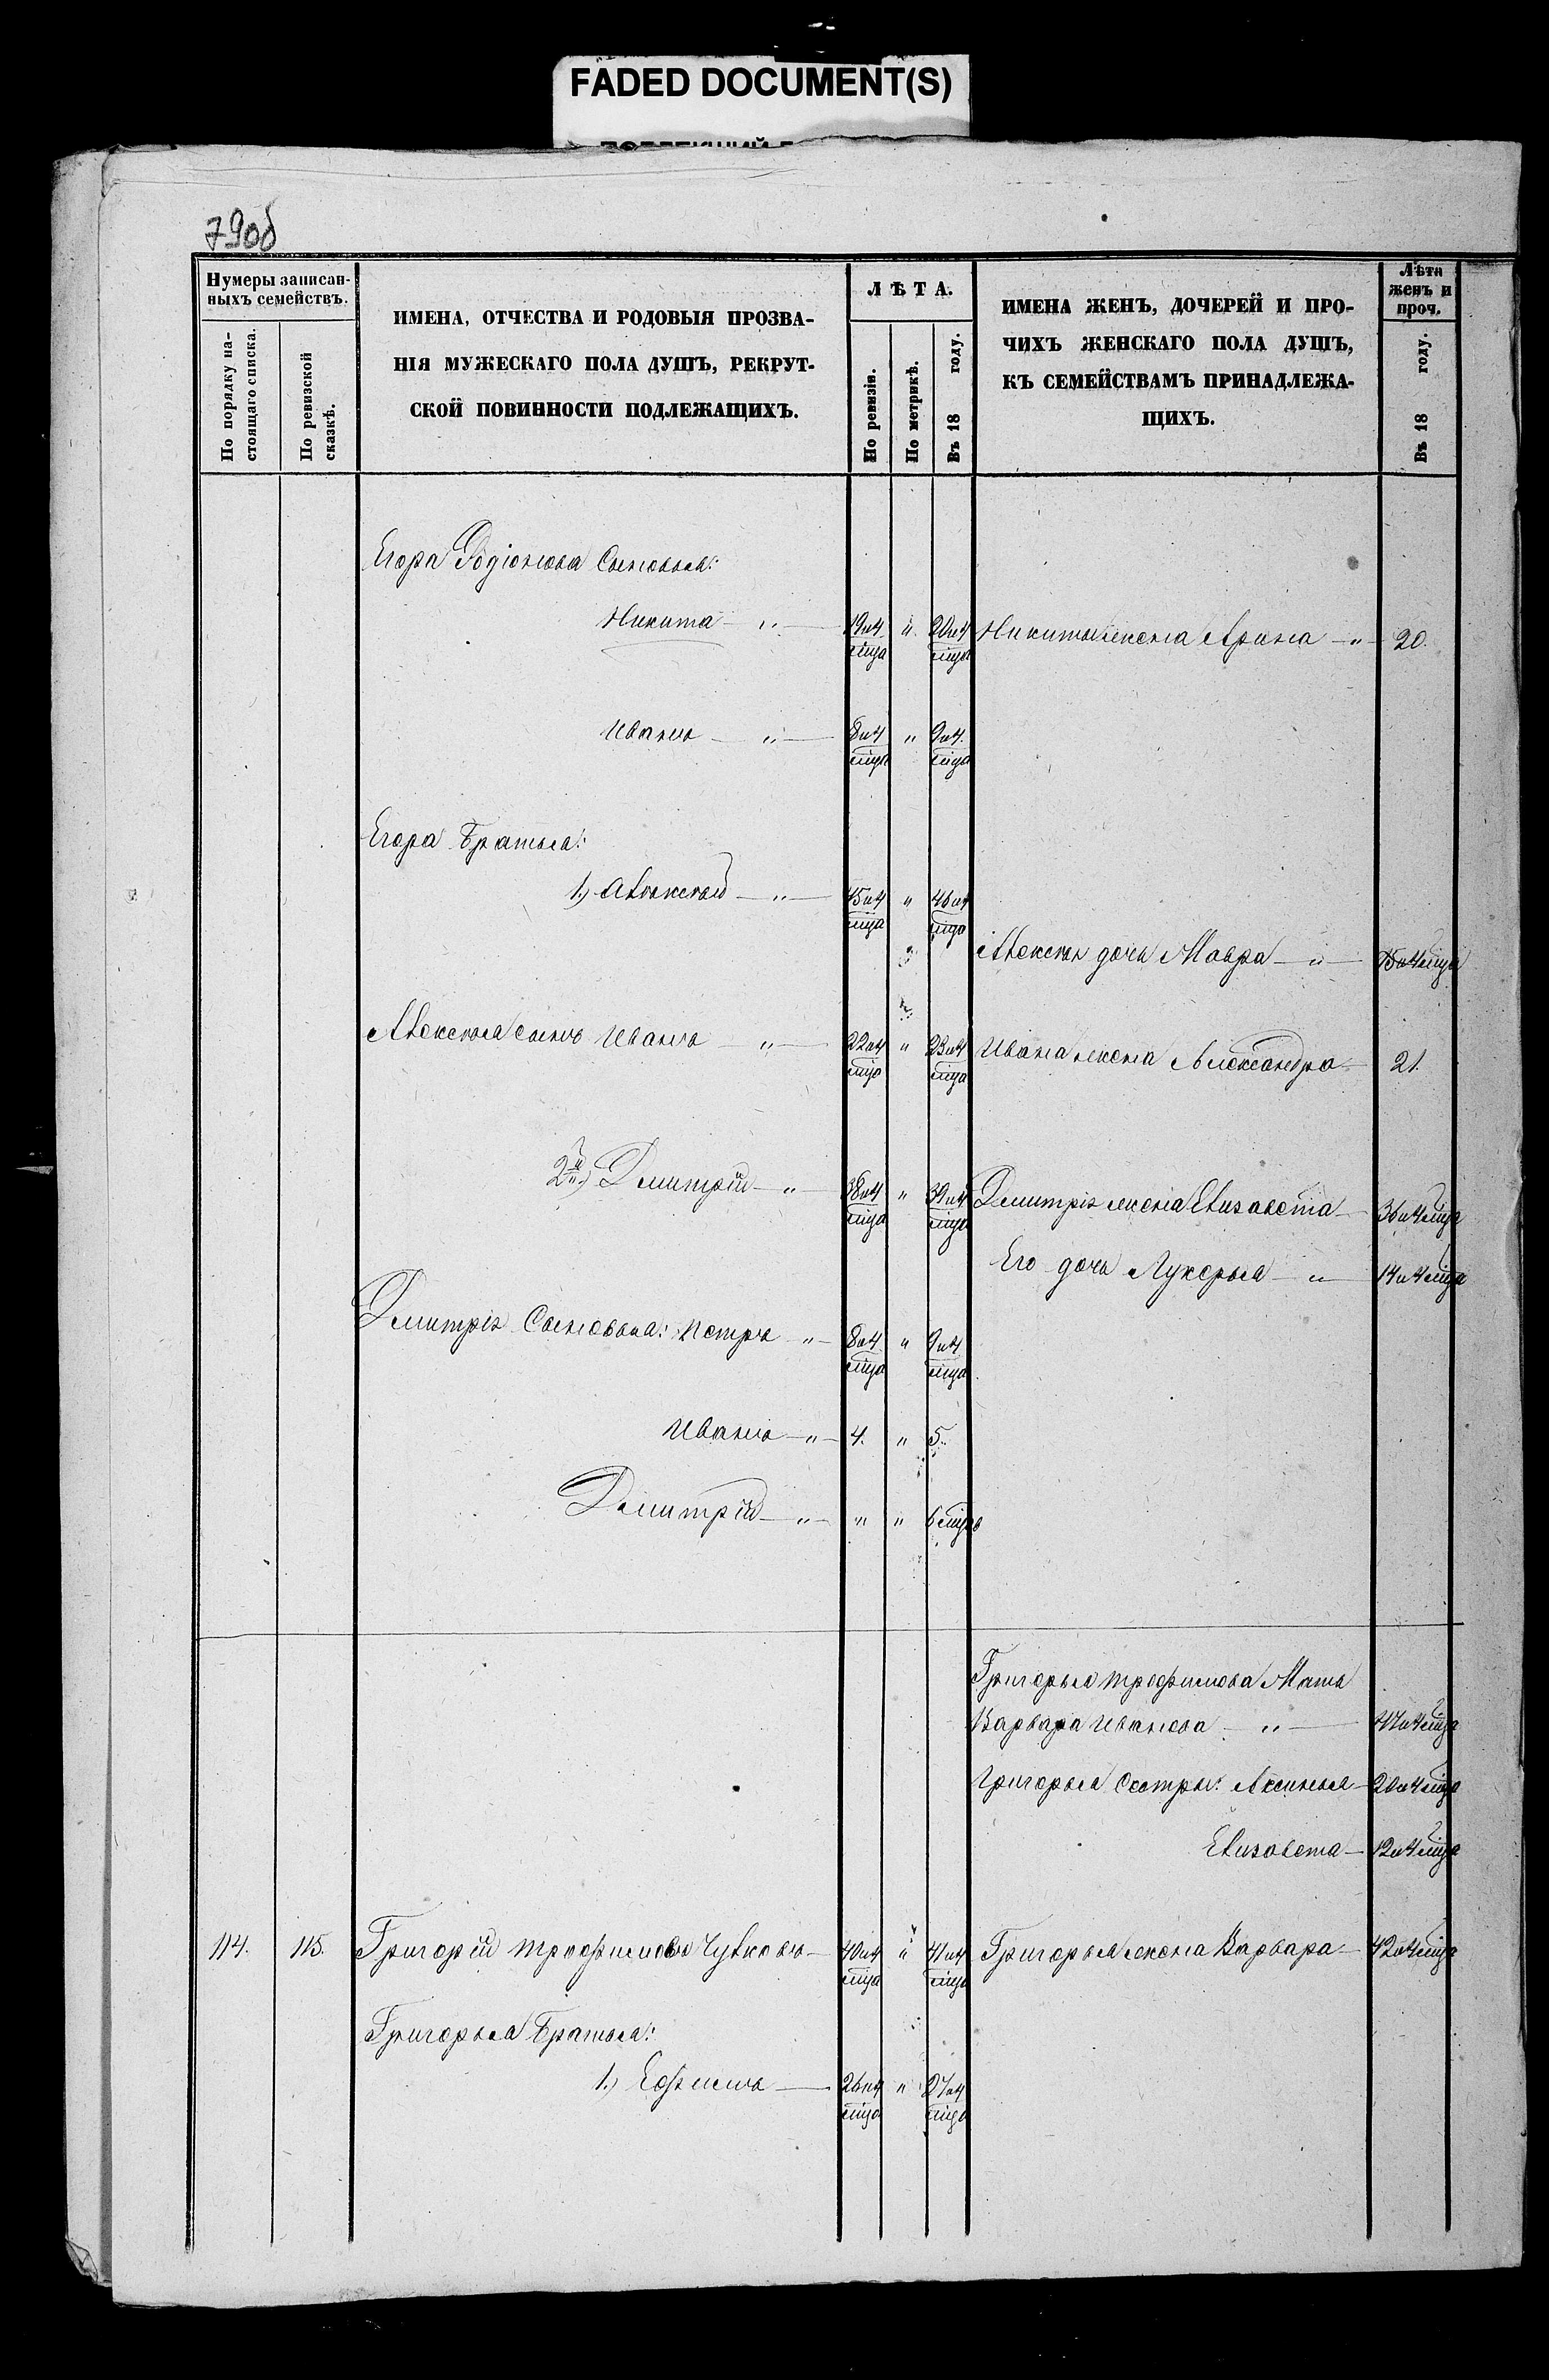 FADED DOCUMENT(S)
79об
Нумеры записан-
ныхъ семействъ.
По порядку на-
стоящаго списка.
По ревизской
сказкѣ.
ИМЕНА, ОТЧЕСТВА И РОДОВЫЯ ПРОЗВА-
НІЯ МУЖЕСКАГО ПОЛА ДУШЪ, РЕКРУТ-
СКОЙ ПОВИННОСТИ ПОДЛЕЖАЩИХЪ.
ЛѢТА.
По ревизіи.
По метрикѣ.
Въ 18 году.
ИМЕНА ЖЕНЪ, ДОЧЕРЕЙ И ПРО-
ЧИХЪ ЖЕНСКАГО ПОЛА ДУШЪ,
КЪ СЕМЕЙСТВАМЪ ПРИНАДЛЕЖА-
ЩИХЪ.
Лѣта
женъ и
проч.
Въ 18 году.
Егора Родіонова Сыновья:
Никита — " — 19 и 4 мца " 20 и 4 мца Никиты жена Арина — " — 20.
Иванъ — " — 8 и 4 мца " 9 и 4 мца
Егора Братья:
1.) Алексѣй — " — 45 и 4 мца " 46 и 4 мца
Алексѣя дочь Мавра — " — 15 и 4 мца
Алексѣя сынъ Иванъ — " — 22 и 4 мца " 23 и 4 мца Ивана жена Александра — 21.
2й.) Дмитрій — " — 38 и 4 мца " 39 и 4 мца Дмитрія жена Елизавета — 36 и 4 мца
Его дочь Лукерья — " — 14 и 4 мца
Дмитрія Сыновья: Петръ " — 8 и 4 мца " 9 и 4 мца
Иванъ — " — 4. " 5.
Дмитрій — " — " " 6 мцъ
Григорья Трофимова Мать
Варвара Иванова — " — и 4 мца
Григорья Сестры: Аксинья — 20 и 4 мца
Елизавета — 12 и 4 мца
114. 115. Григорій Трофимовъ Чулковъ — 40 и 4 мца " 41 и 4 мца Григорья жена Варвара — 42 и 4 мца
Григорья Братья:
1.) Ефимъ — 26 и 4 мца " 27 и 4 мца